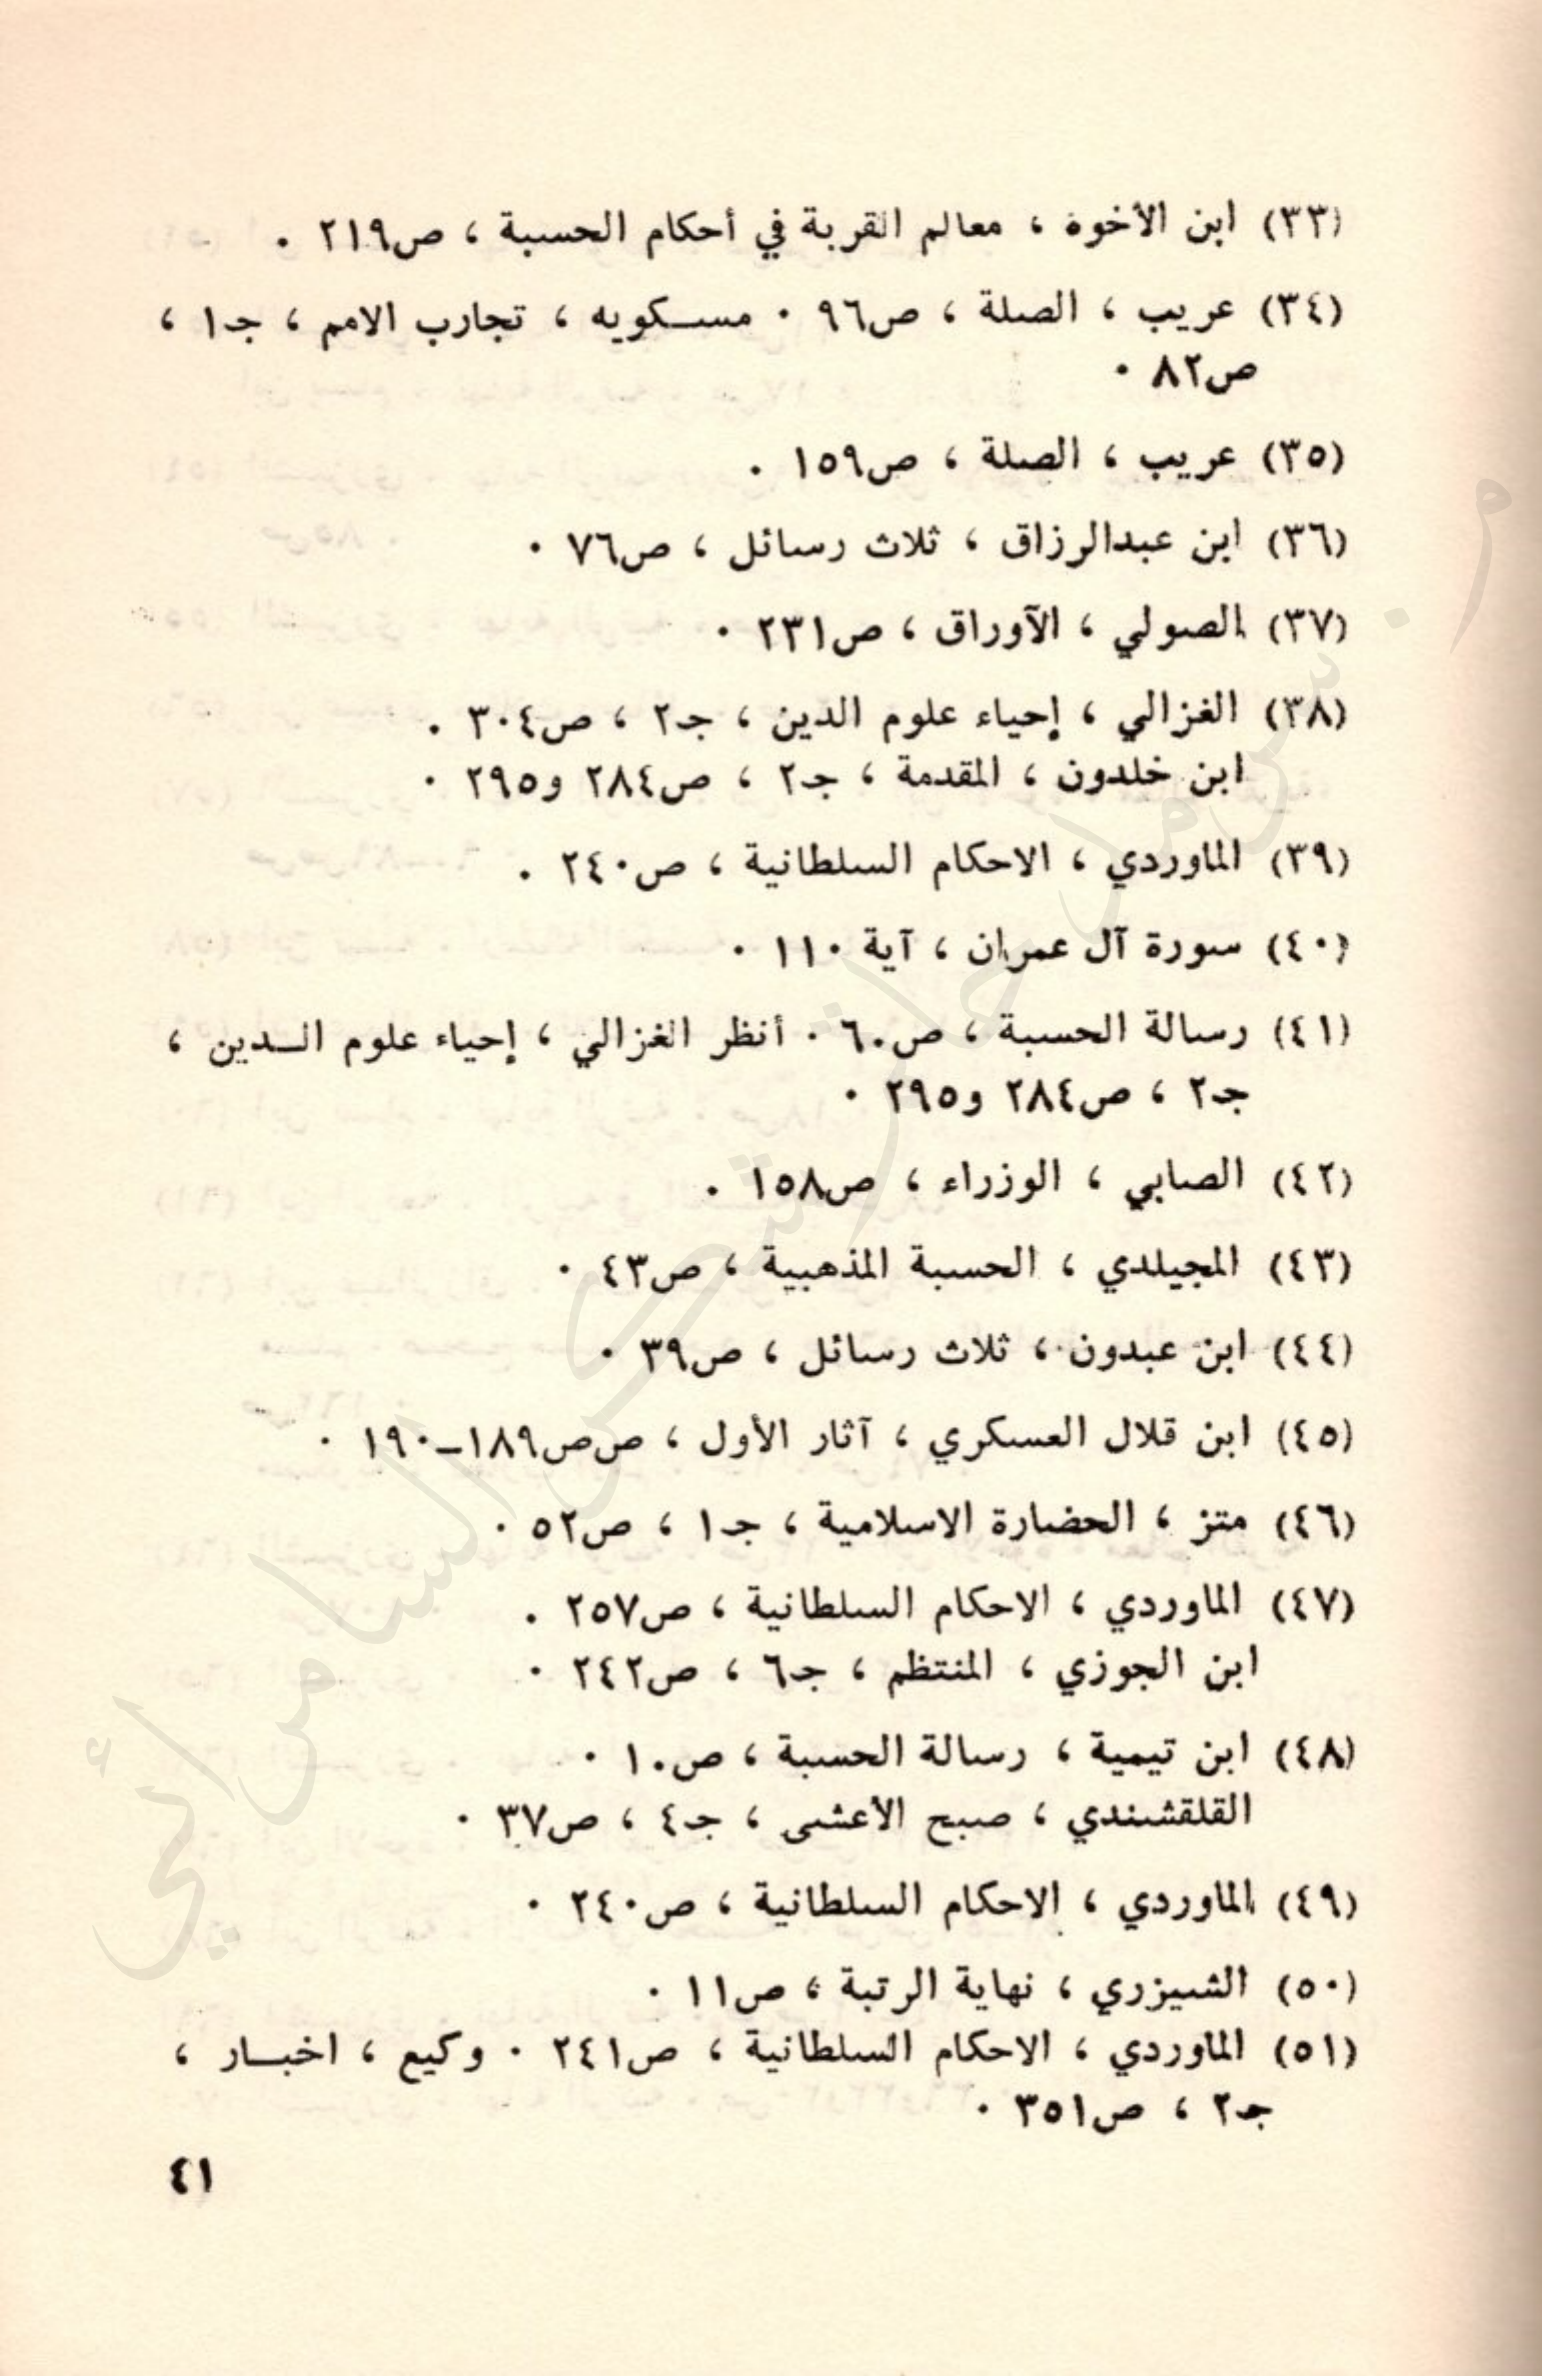 (٣٣) ابن الأخوة ، معالم القربة في أحكام الحسبة ، ص٢١٩ ٠
(٣٤) عريب ، الصلة ، ص٩٦ ٠ مسـكويه ، تجارب الامم ، جـ١ ،
ص٨٢ ٠
(٣٥) عريب ، الصلة ، ص١٥٩ ٠
(٣٦) ابن عبدالرزاق ، ثلاث رسائل ، ص٧٦ ٠
(٣٧) الصولي ، الآوراق ، ص٢٣١ ٠
(٣٨) الغزالي ، إحياء علوم الدين ، جـ٢ ، ص٣٠٤ ٠
ابن خلدون ، المقدمة ، جـ٢ ، ص٢٨٤ و٢٩٥ ٠
(٣٩) الماوردي ، الاحكام السلطانية ، ص٢٤٠ ٠
(٤٠) سورة آل عمران ، آية ١١٠ ٠
(٤١) رسالة الحسبة ، ص٦٠ ٠ أنظر الغزالي ، إحياء علوم الـدين ،
جـ٢ ، ص٢٨٤ و٢٩٥ ٠
(٤٢) الصابي ، الوزراء ، ص١٥٨ ٠
(٤٣) المجيلدي ، الحسبة المذهبية ، ص٤٣ ٠
(٤٤) ابن عبدون ، ثلاث رسائل ، ص٣٩ ٠
(٤٥) ابن قلال العسكري ، آثار الأول ، صص١٨٩–١٩٠ ٠
(٤٦) متز ، الحضارة الاسلامية ، جـ١ ، ص٥٢ ٠
(٤٧) الماوردي ، الاحكام السلطانية ، ص٢٥٧ ٠
ابن الجوزي ، المنتظم ، جـ٦ ، ص٢٤٢ ٠
(٤٨) ابن تيمية ، رسالة الحسبة ، ص١٠ ٠
القلقشندي ، صبح الأعشى ، جـ٤ ، ص٣٧ ٠
(٤٩) الماوردي ، الاحكام السلطانية ، ص٢٤٠ ٠
(٥٠) الشيزري ، نهاية الرتبة ، ص١١ ٠
(٥١) الماوردي ، الاحكام السلطانية ، ص٢٤١ ٠ وكيع ، اخبـار ،
جـ٢ ، ص٣٥١ ٠
٤١